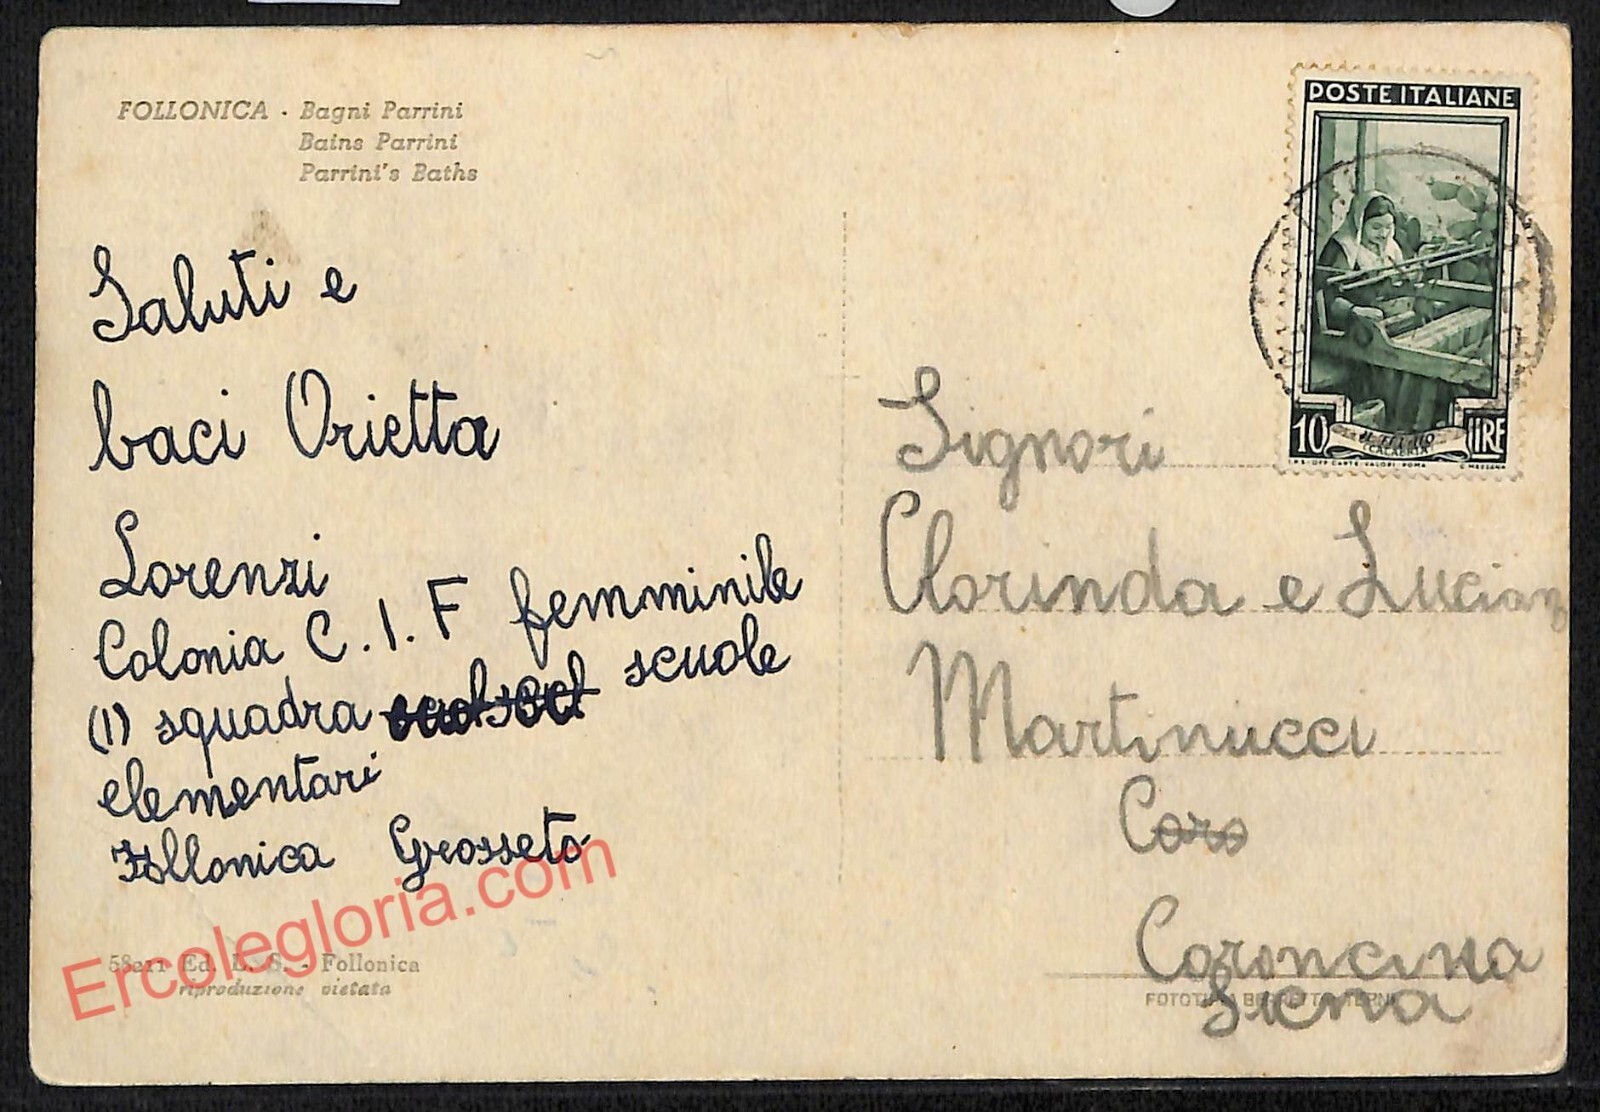 FOLLONICA - Bagni Parrini
Bains Parrini
Parrini's Baths
Saluti e
baci Orietta
Lorenzi
Colonia C.I.F femminile
(1) squadra scuole
elementari
Follonica Grosseto
58211 Ed. D. S. - Follonica
riproduzione vietata
Ercolegloria.com
POSTE ITALIANE
10 LIRE
(CALABRIA)
I.P.S.-OFF. CARTE-VALORI-ROMA
Signori
Clorinda e
Martinucci
Coro
Coroncina
Siena
FOTOTIPIA BERRETTA TERNI